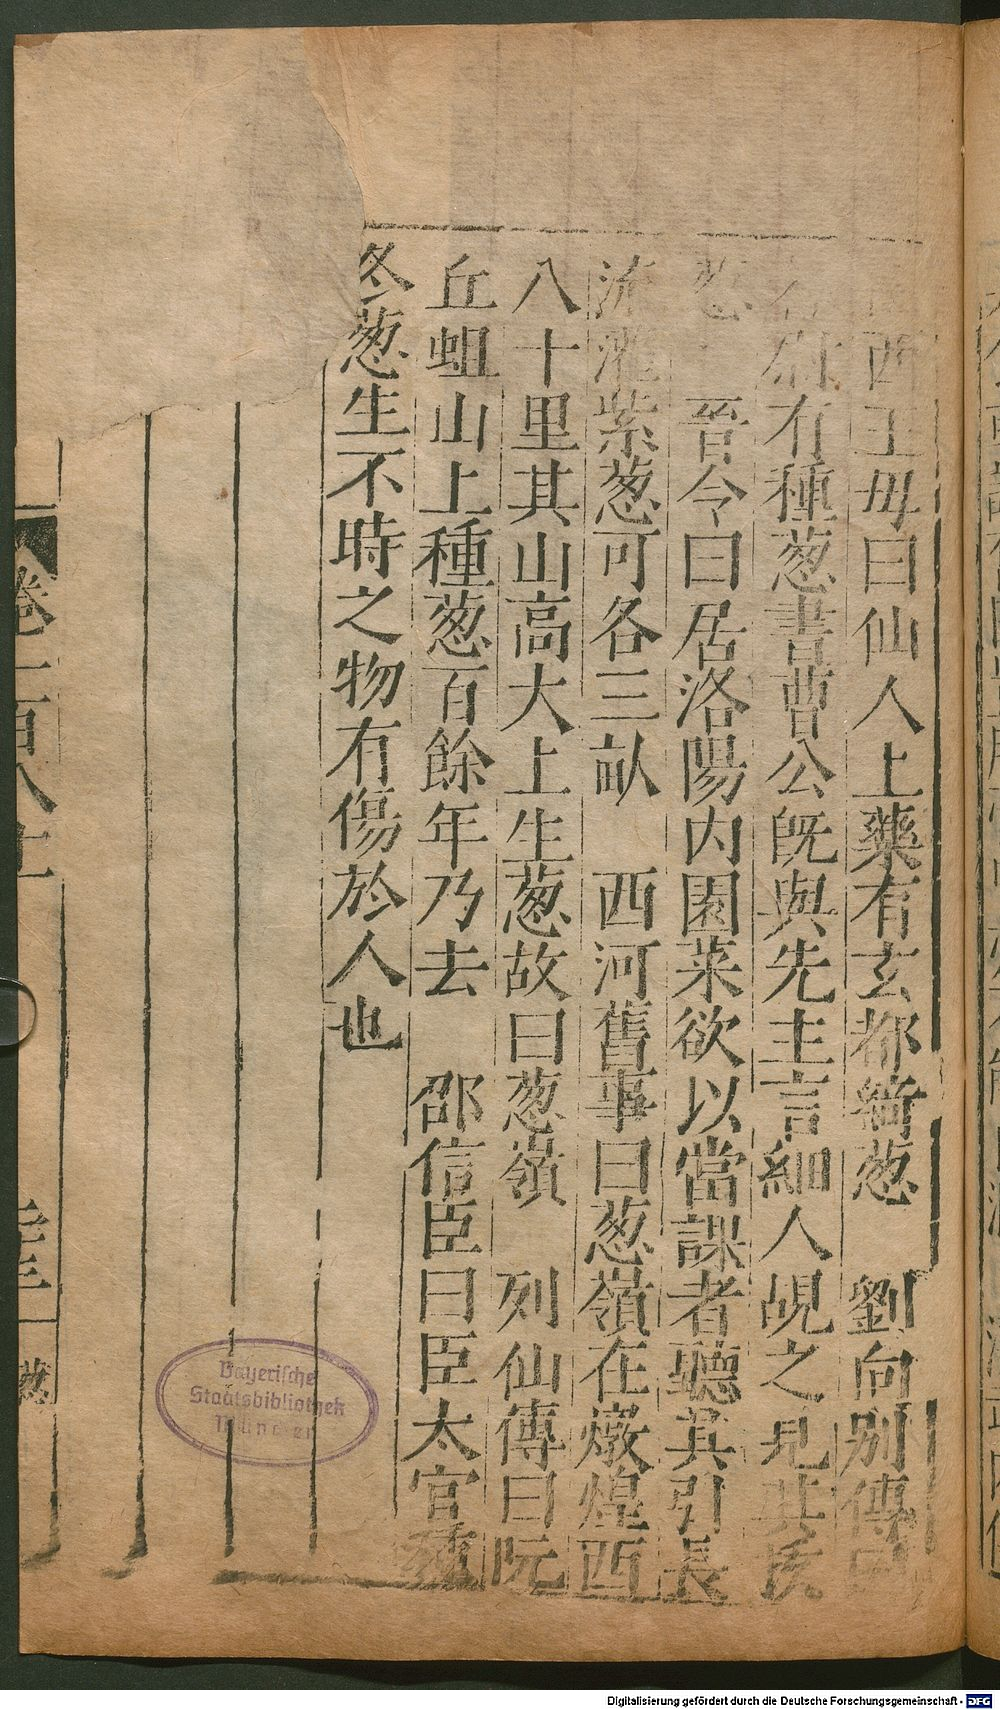 西王母曰仙人上藥有玄都綺葱　劉向別傳曰
有種葱書曹公既與先主言細人覘之見其
晉令曰居洛陽内園菜欲以當課者聽其引長
流灌紫葱可各三畝　西河舊事曰葱嶺在燉煌西
八十里其山高大上生葱故曰葱嶺　列仙傳曰阮
丘蛆山上種葱百餘年乃去　邵信臣曰臣太官種
冬葱生不時之物有傷於人也
卷一百八十
葱
Bayerische
Staatsbibliothek
München
Digitalisierung gefördert durch die Deutsche Forschungsgemeinschaft - DFG